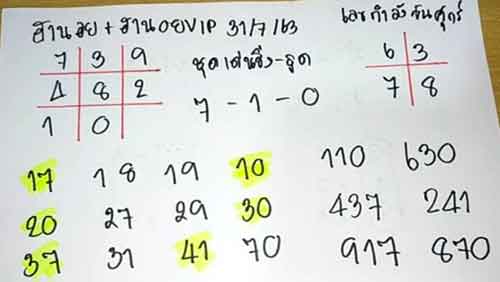 ฮานอย + ฮานอยVIP 31/7/63
เลขกำลังวันศุกร์
7 3 9
4 8 2
1 0
ชุดเด่นวิ่ง-รูด
7 - 1 - 0
6 3
7 8
17 18 19 10 110 630
20 27 29 30 437 241
37 31 41 70 917 870